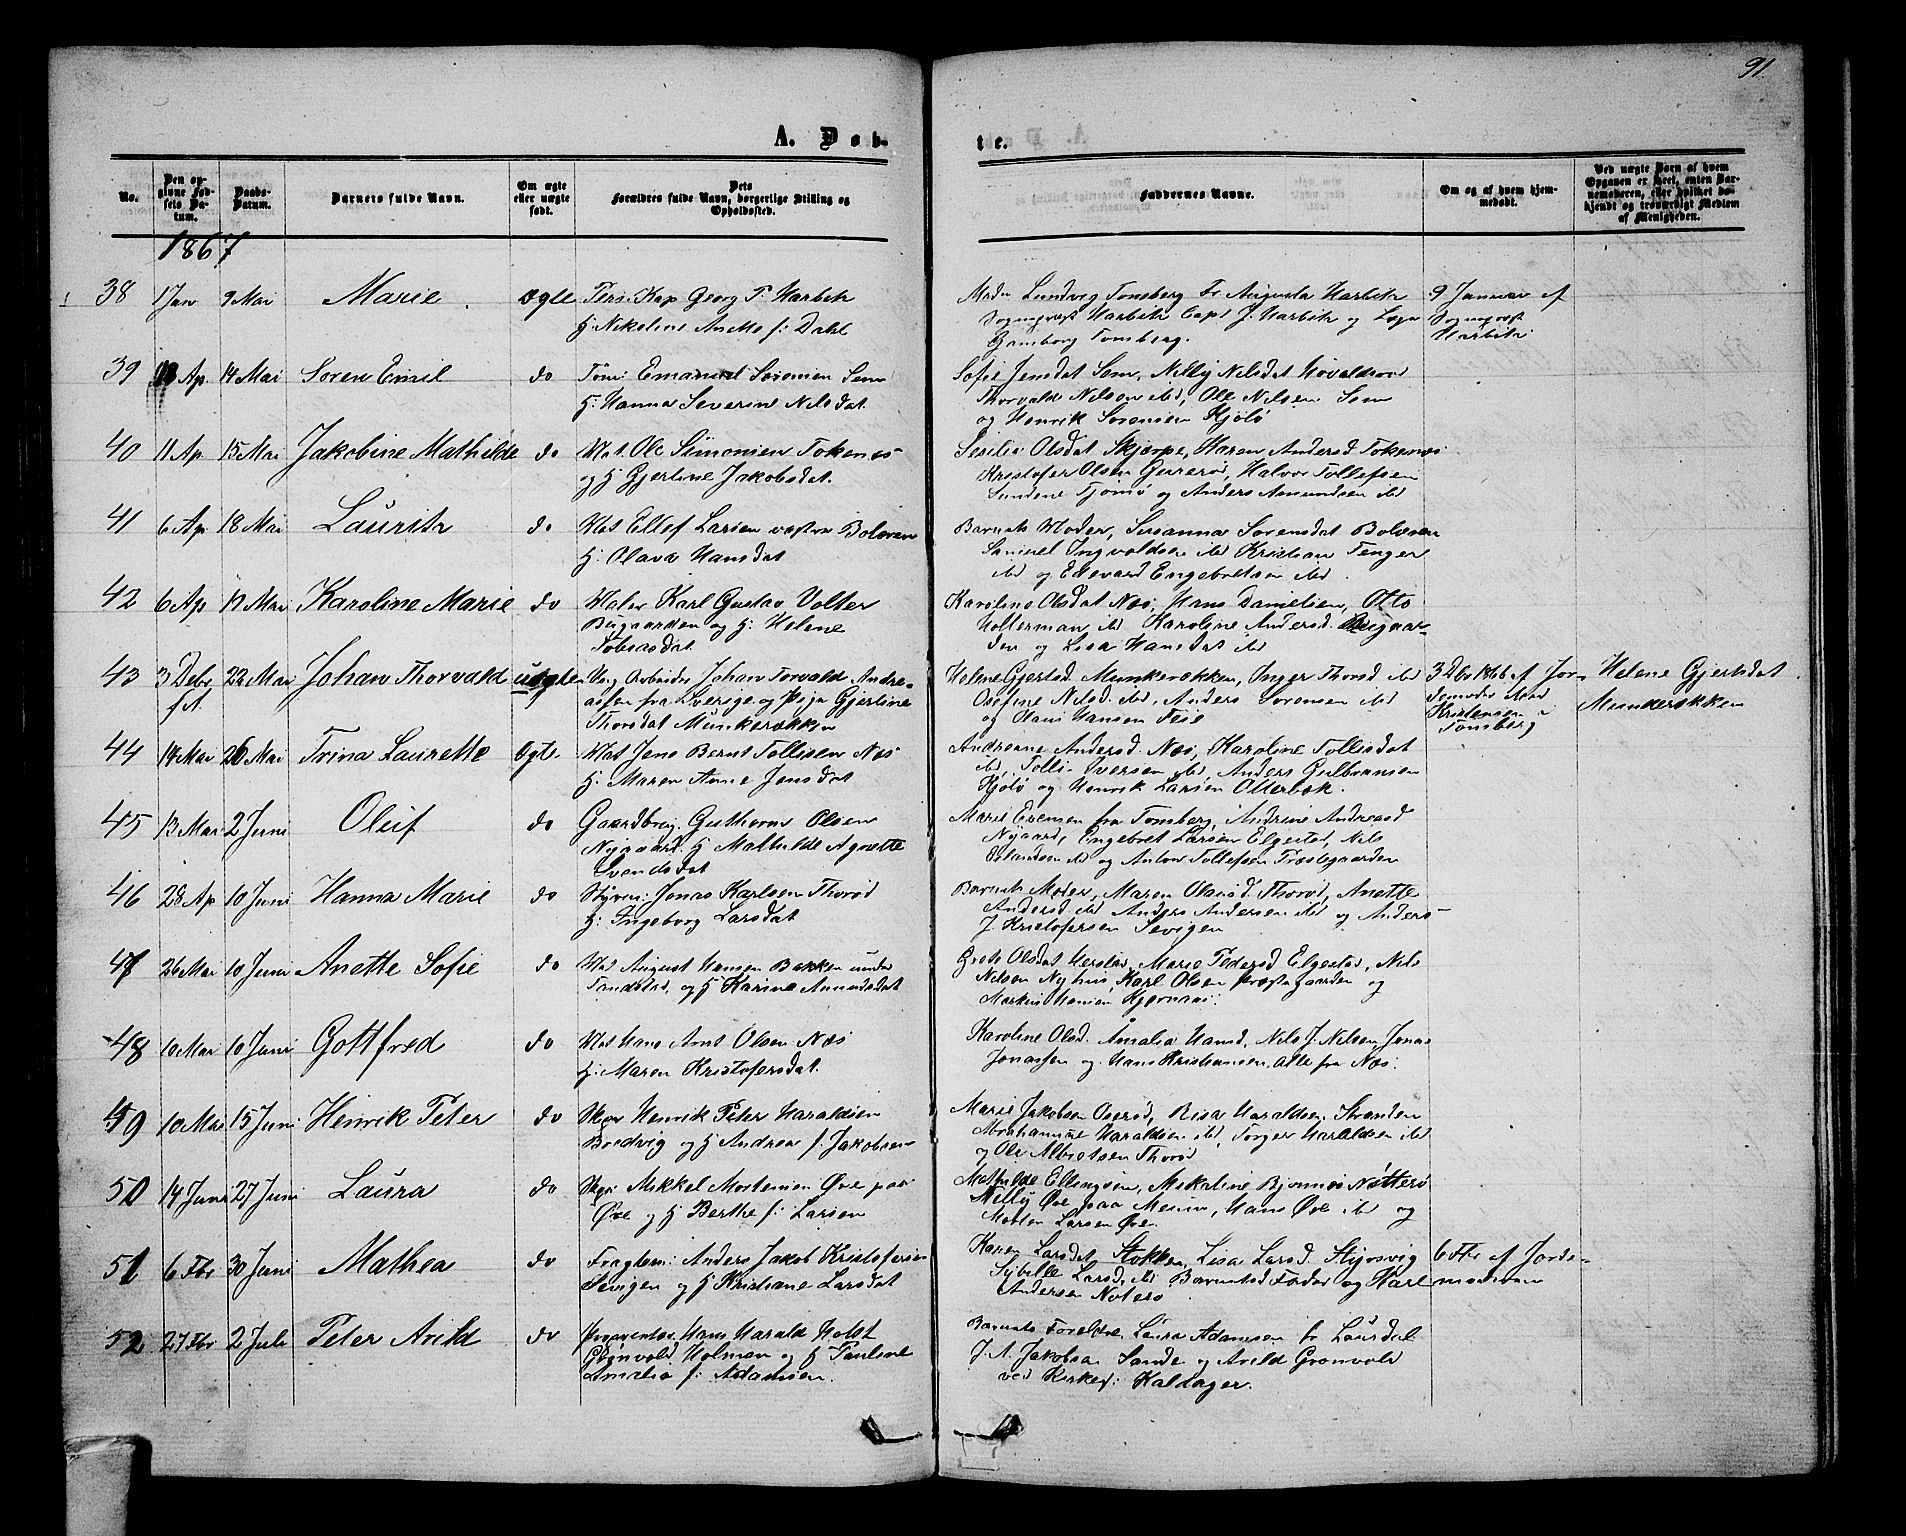 91.
A. Døb-
te.
No.
Den op-
givne Fød-
sels Da-
tum.
Daabs-
Datum.
Barnets fulde Navn.
Om ægte
eller uægte
født.
Dets
Forældres fulde Navn, borgerlige Stilling og
Opholdssted.
Faddernes Navne.
Om og af hvem hjem-
medøbt.
Ved uægte Børn af hvem
Opgaven er skeet, enten Bar-
nemoderen, eller hvilket be-
kjendt og troværdigt Medlem
af Menigheden.
1867
38 1 Jan 9 Mai Marie ægte Georg P. Harbitz
H: Nikoline Anette f: Dahl
Lundvig Tønsberg Fr Augusta Harbitz
Sogneprest Harbitz Capt J. Harbitz og
Tønsberg.
9 Januar af
Sogneprest
Harbitz
39 Ap. 14 Mai Søren Emil do Tøm: Emanuel Sørensen Sem
H: Hanna Severine Nilsdat.
Sofie Jensdat Sem, Nilly Nilsdat
Thorvald Nilsen ibd, Ole Nilsen Sem
og Henrik Sørensen Kjøłø
40 11 Ap 15 Mai Jakobine Mathilde do Mat. Ole Simonsen Tokenes
og H Gjertine Jakobsdat.
Sesilie Olsdat Skjerpe, Maren Andersd Tokenæs
Kristofer Olsen, Halvor Tollefsen
Sundene Tjømø og Anders Amundsen ibd
41 6 Ap 18 Mai Lauritz do Mat Ellef Larsen vestre Bolæren
H: Olava Hansdat
Barnets Moder, Susanna Sørensdat Bolæren
Samuel Ingvoldsen ibd Kristian Tenger
ibd og Edevard Engebretsen ibd.
42 6 Ap Mai Karoline Marie do Maler Karl Gustav Volter
Bugaarden og H: Helene
Tobiasdat
Karoline Olsdat Næs, Hans Danielsen, Otto
Holterman ibd Karoline Andersd. Bugaar-
den og Lisa Hansdat ibd
43 3 Debr 22 Mai Johan Thorvald uægte Ung. Arbeider Johan Torvald Andre-
assen fra Sverige og Pige Gjertine
Thorsdat Munkerækken
Helene Gjertsd. Munkerækken, Inger Thorsd ibd
Osefine Nilsd. ibd, Anders Sørensen ibd
og Hansen Feie
3 Dbr 1866 af Jor-
demoder
Kristensen
Tønsberg
Helene Gjertsdat
Munkerekken
44 14 Mai 26 Mai Trina Laurette ægte Mat Jens Bernt Tollisen Næs
H: Maren Anne Jensdat
Andreane Andersd. Næs, Karoline Tollisdat
ibd, Tolli Iversen ibd, Anders Gulbransen
Kjøłø og Henrik Larsen Otterbæk.
45 13 Mar 2 Juni Oluf do Gaardbrug. Guthorm Olsen
Nygaard. H Mathilde Agnette
Svendsdat
Marie Evensen fra Tønsberg, Andrine Andreasd
Nygaard, Engebret Larsen Elgestad, Nils
ibd og Anton Tollefsen Præstegaarden
46 28 Ap 10 Juni Hanna Marie do Styrm: Jonas Karlsen Thorød
H: Ingeborg Larsdat
Barnets Moder, Maren Olausd. Thorød, Anette
Andersd. ibd Anders Andersen ibd og Anders
J. Kristofersen Tevigen
47 26 Mai 10 Juni Anette Sofie do Mat August Hansen Bakken under
og H Karine Amundsdat
Grete Olsdat Herstad, Marie Pedersd Elgestad, Nils
Nilsen Nyhus, Karl Olsen Præstegaarden og
Markus Hansen Kjernaas.
48 10 Mar 10 Juni Gottfred do Mat Hans Arnt Olsen Næs
H: Maren Kristofersdat.
Karoline Olsd. Amalia Hansd, Nils J. Nilsen, Jonas
Jonassen og Hans Kristiansen, alle fra Næs.
49 10 Mai 15 Juni Henrik Peter do Skpr Henrik Peter Haraldsen
Bredvig og H Andrea f: Jakobsen
Marie Jakobsen Oserød, Risa Haraldsen, Stranden
Abrahamine Haraldsen ibd, Torger Haraldsen ibd
og Ole Albretsen Thorød
50 14 Juni 27 Juni Laura do Skpr Mikkel Mortensen Øre paa
Øre og H Berthe f: Larsen
Mathilde Ellingsen, Mekaline Bjønnes Nøtterø
Nilly Øre paa, Hans Øre ibd og
Morten Larsen Øre.
51 6 Fbr 30 Juni Mathea do Fragtem: Anders Jakob Kristofersen
Tevigen og H Kristiane Larsdat
Karen Larsdat Stokken, Lisa Larsd. Stjosvig
Sybille Larsd. ibd Barnets Fader og Karl
Andersen Nøterø
6 Fbr af Jorde-
moderen
52 27 Fbr 2 Juli Peter Arild do Proprietær, Hans Harald Holst
Grønvold, Holmen og H Pauline
Amalia f: Adamsen.
Barnets Foreldre, Laura Adamsen fr Laurdal
J. A. Jakobsen Sande og Arild Grønvold
ved Kirkes: Kaldager.